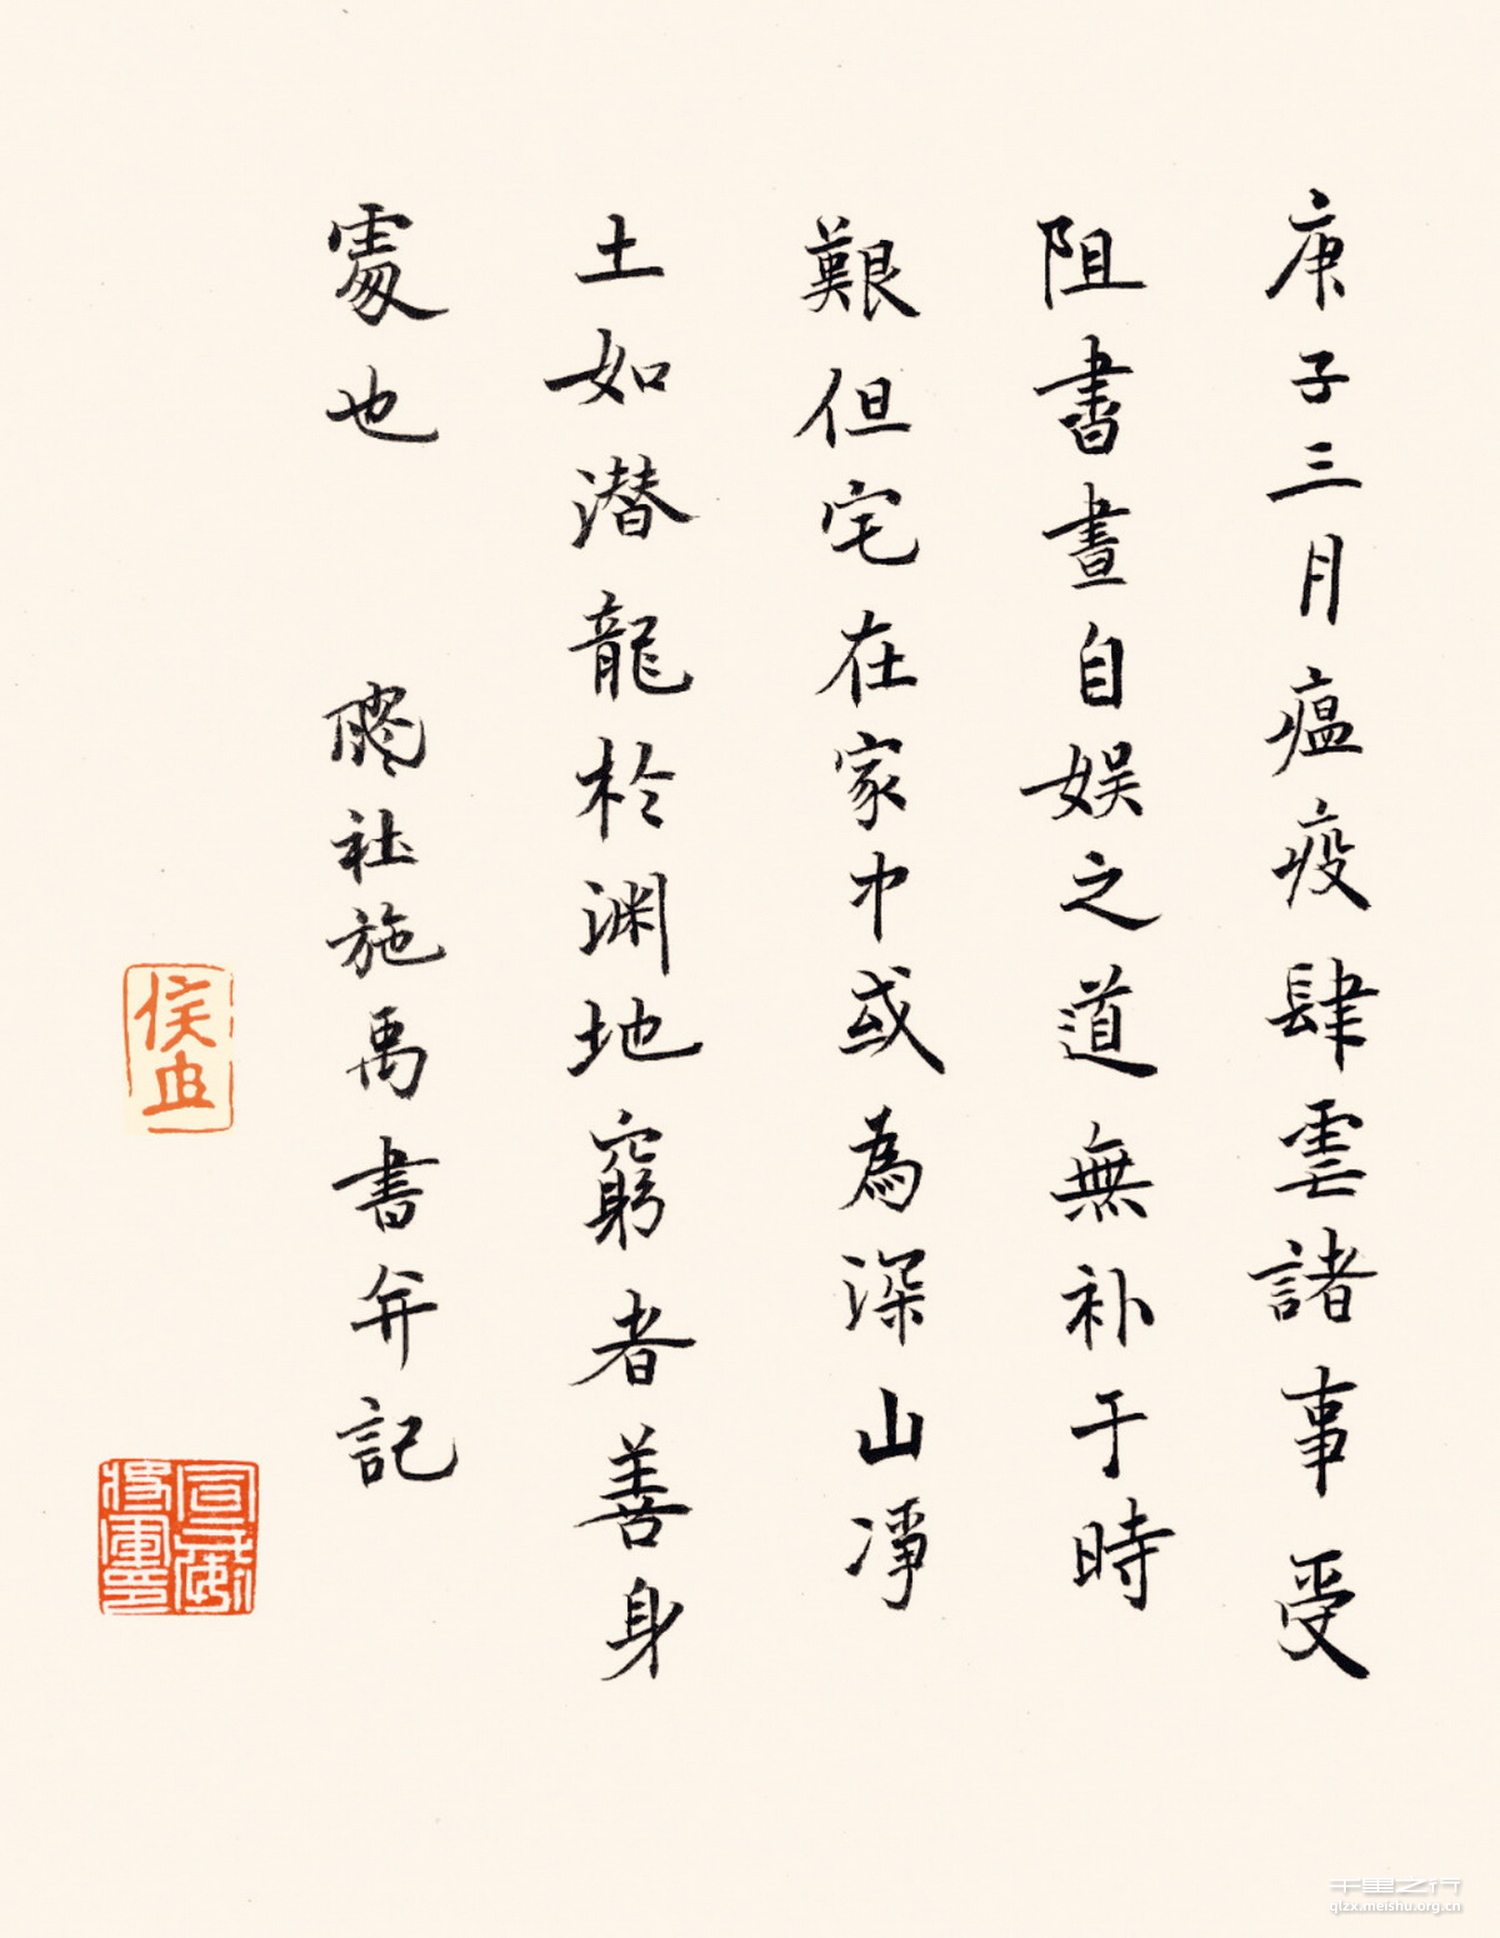 庚子三月瘟疫肆雲諸事受
阻書畫自娱之道無补于時
艱但宅在家中或為深山凈
土如潜龍於渊地窮者善身
處也
社施禹書并記
千里之行
qlzx.meishu.org.cn